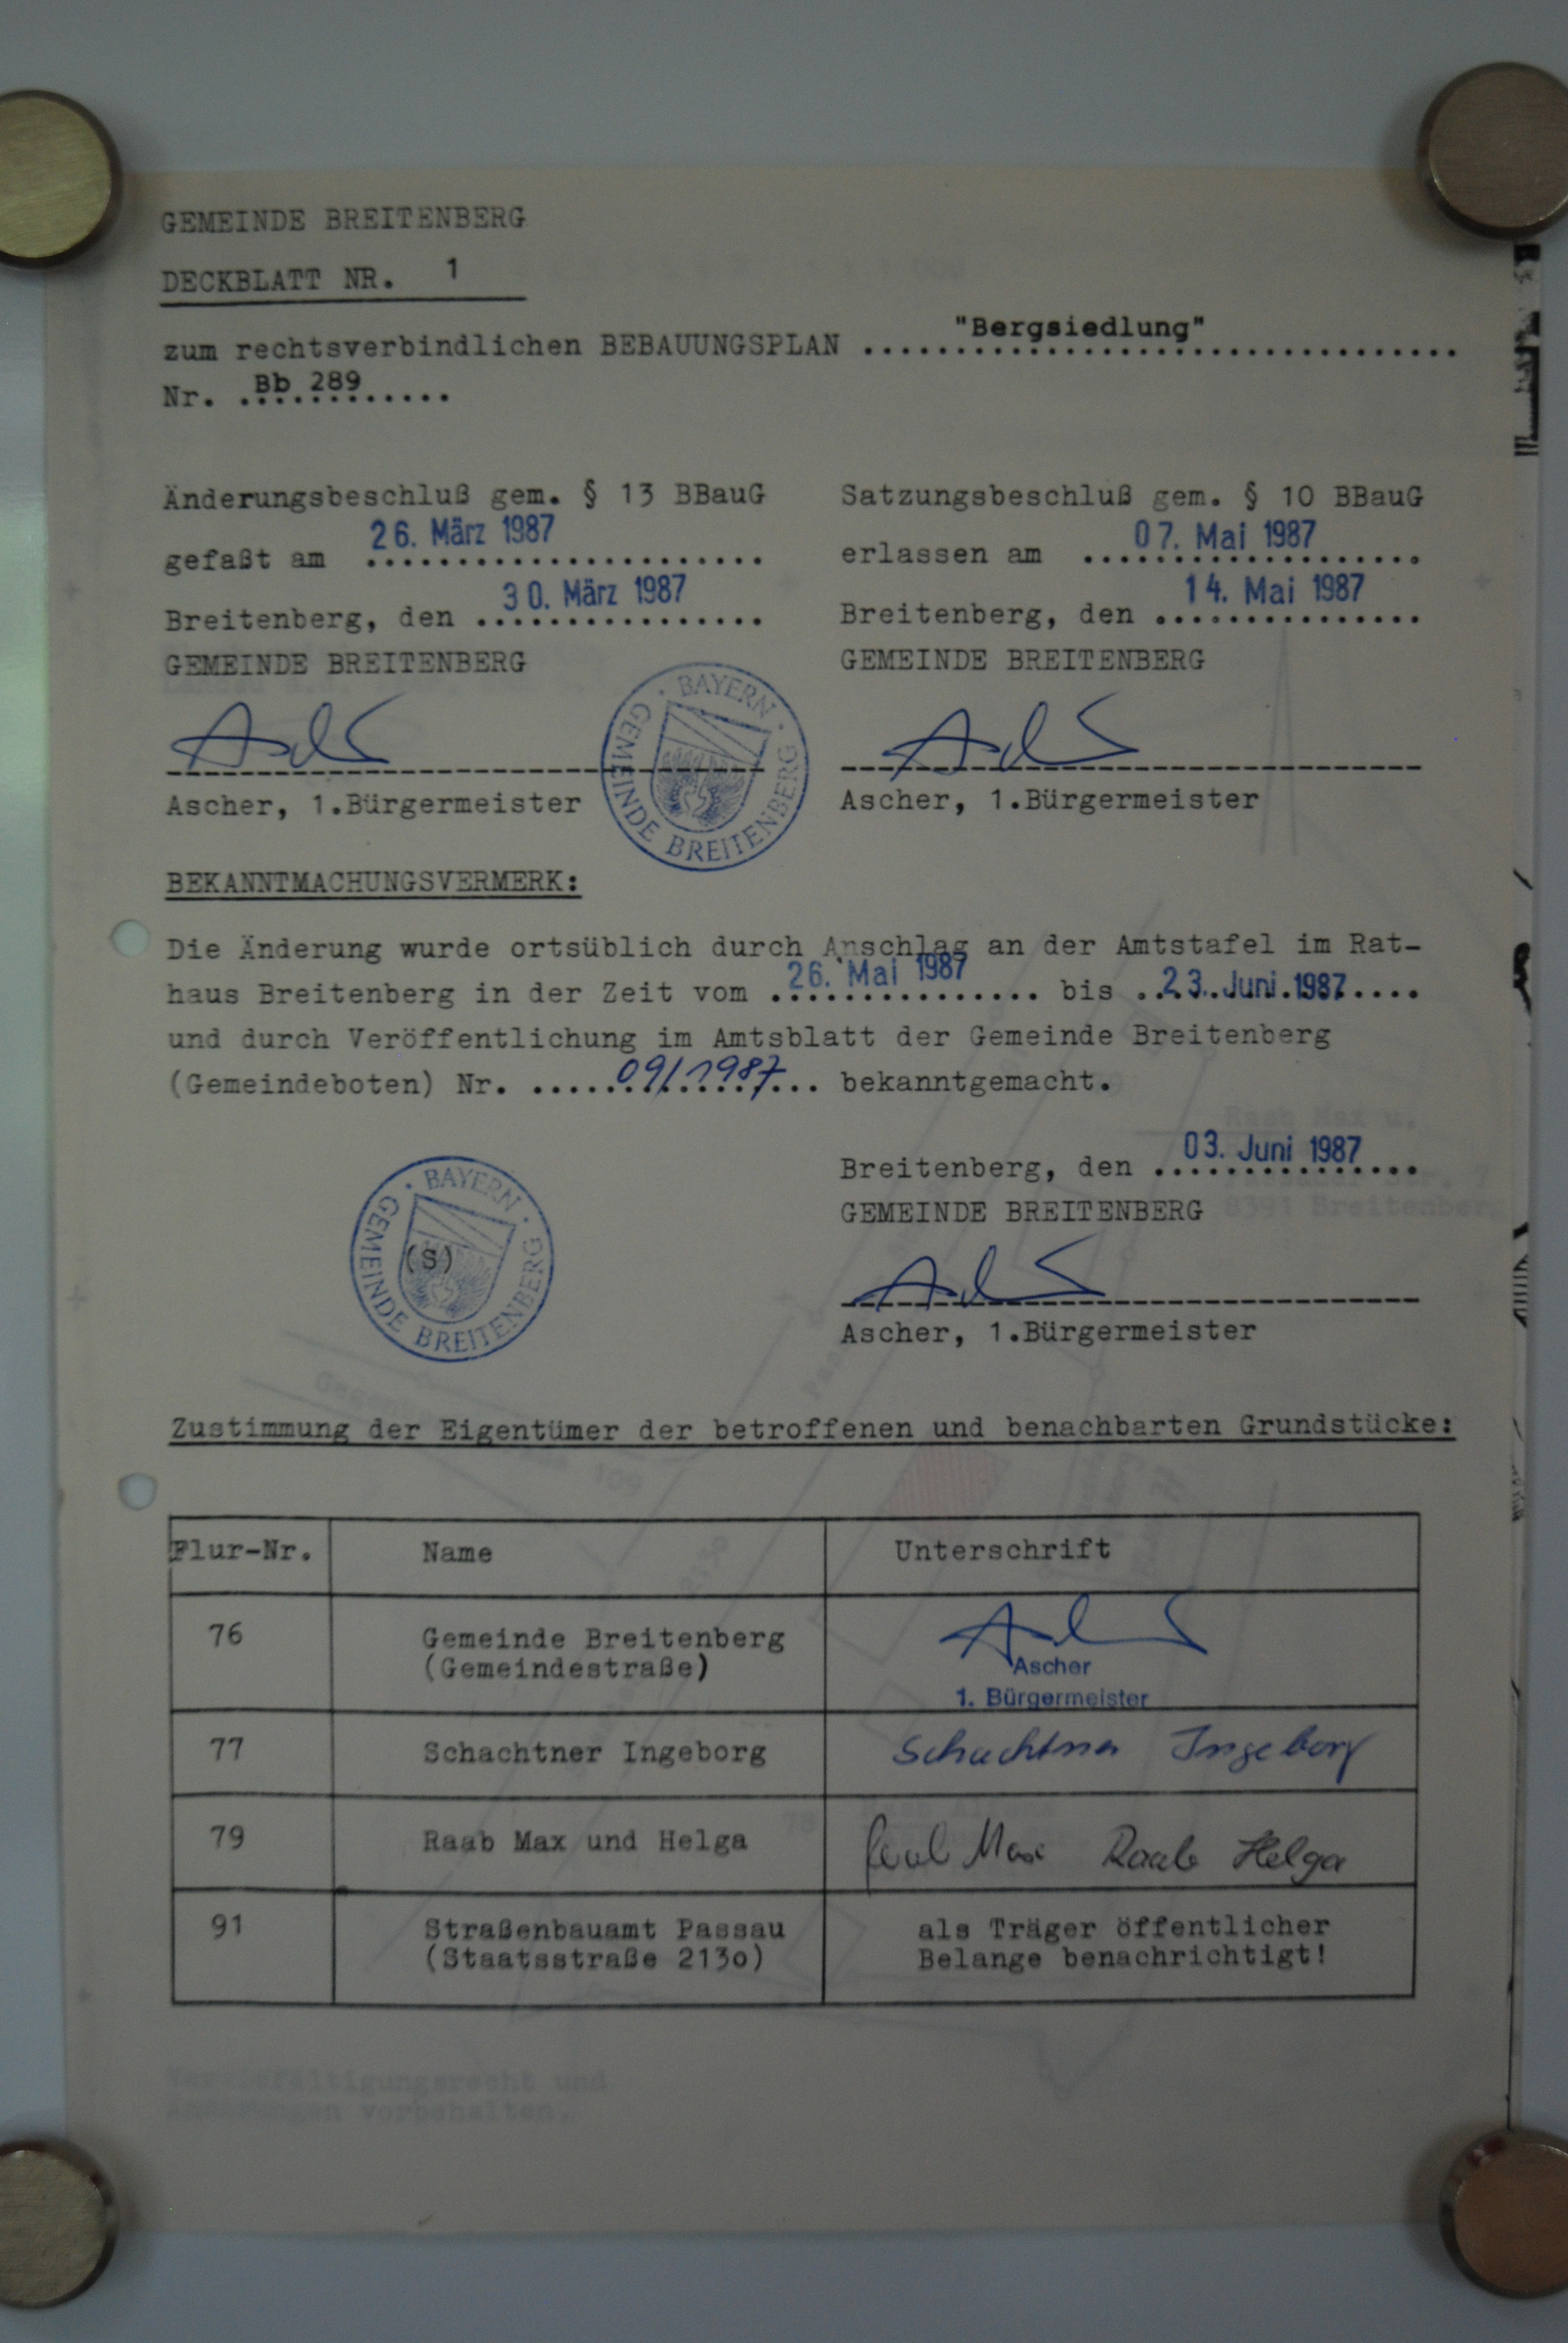 GEMEINDE BREITENBERG
DECKBLATT NR. 1
zum rechtsverbindlichen BEBAUUNGSPLAN "Bergsiedlung"
Nr. Bb 289
Änderungsbeschluß gem. § 13 BBauG
gefaßt am 26. März 1987
Breitenberg, den 30. März 1987
GEMEINDE BREITENBERG
Ascher, 1.Bürgermeister
BAYERN
GEMEINDE BREITENBERG
Satzungsbeschluß gem. § 10 BBauG
erlassen am 07. Mai 1987
Breitenberg, den 14. Mai 1987
GEMEINDE BREITENBERG
Ascher, 1.Bürgermeister
BEKANNTMACHUNGSVERMERK:
Die Änderung wurde ortsüblich durch Anschlag an der Amtstafel im Rat-
haus Breitenberg in der Zeit vom 26. Mai 1987 bis 23. Juni 1987
und durch Veröffentlichung im Amtsblatt der Gemeinde Breitenberg
(Gemeindeboten) Nr. 09/1987 bekanntgemacht.
BAYERN
(S)
GEMEINDE BREITENBERG
Breitenberg, den 03. Juni 1987
GEMEINDE BREITENBERG
Ascher, 1.Bürgermeister
Zustimmung der Eigentümer der betroffenen und benachbarten Grundstücke:
Flur-Nr. Name Unterschrift
76 Gemeinde Breitenberg
(Gemeindestraße)
Ascher
1. Bürgermeister
77 Schachtner Ingeborg Schachtner Ingeborg
79 Raab Max und Helga Raab Max Raab Helga
91 Straßenbauamt Passau als Träger öffentlicher
(Staatsstraße 213o) Belange benachrichtigt!